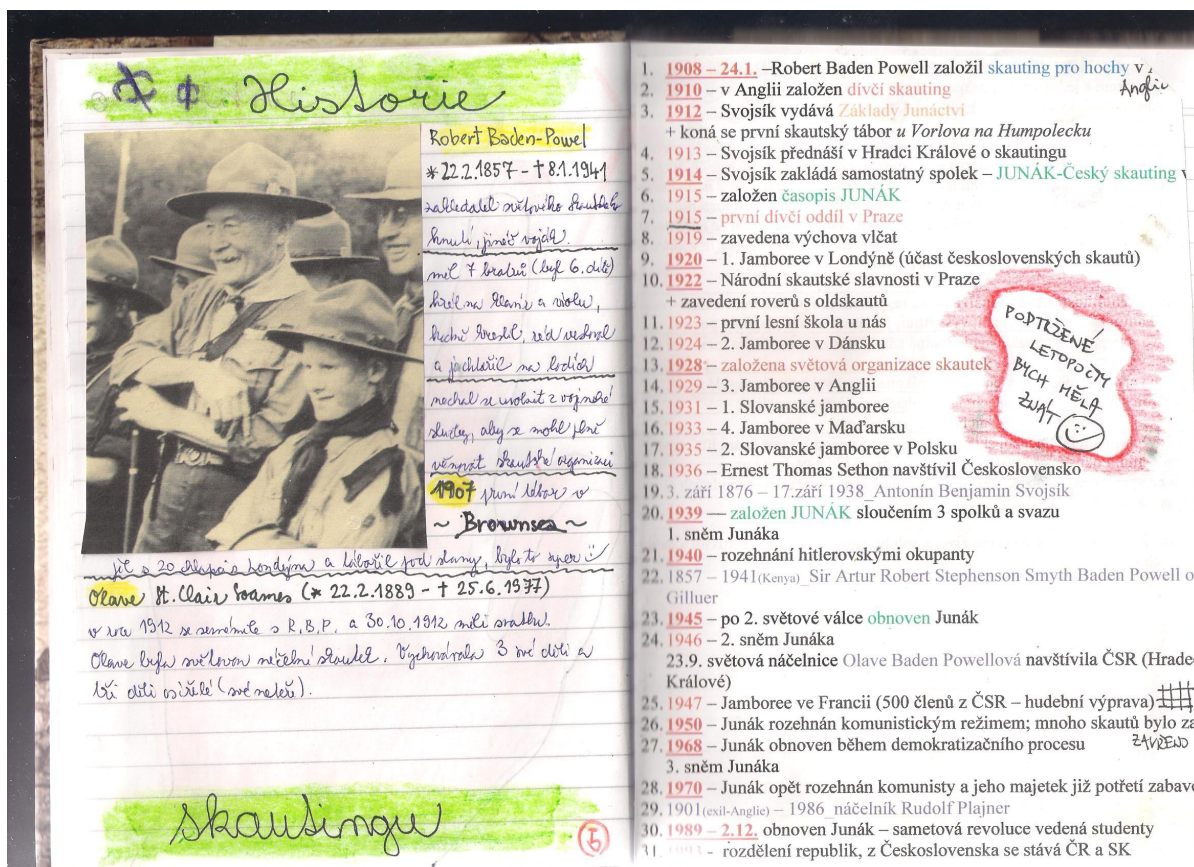 Historie
Robert Baden-Powel
* 22.2.1857 - † 8.1.1941
zakladatel světového skautské
hnutí, jinač voják.
měl 7 bratrů (byl 6. dítě)
hrál na klavír a violu,
kreslil, rád cestoval
a jachtařil na lodích
nechal se uvolnit z vojenské
služby, aby se mohl plně
věnovat skautské organizaci
1907 první tábor v
~ Brownsea ~
jel s 20 chlapci z Londýna a tábořil pod stany, bylo to super
Olave St. Clair Soames (* 22.2.1889 - † 25.6.1977)
v roce 1912 se seznámila s R.B.P. a 30.10.1912 měli svatbu.
Olave byla světovou náčelní skautek. Vychovávala 3 své děti a
tři děti osiřelé (své neteře).
skautingu
5
1. 1908 – 24.1. –Robert Baden Powell založil skauting pro hochy v
Anglii
2. 1910 – v Anglii založen dívčí skauting
3. 1912 – Svojsík vydává Základy Junáctví
+ koná se první skautský tábor u Vorlova na Humpolecku
4. 1913 – Svojsík přednáší v Hradci Králové o skautingu
5. 1914 – Svojsík zakládá samostatný spolek – JUNÁK-Český skauting v
6. 1915 – založen časopis JUNÁK
7. 1915 – první dívčí oddíl v Praze
8. 1919 – zavedena výchova vlčat
9. 1920 – 1. Jamboree v Londýně (účast československých skautů)
10. 1922 – Národní skautské slavnosti v Praze
+ zavedení roverů s oldskautů
11. 1923 – první lesní škola u nás
12. 1924 – 2. Jamboree v Dánsku
13. 1928 – založena světová organizace skautek
14. 1929 – 3. Jamboree v Anglii
15. 1931 – 1. Slovanské jamboree
16. 1933 – 4. Jamboree v Maďarsku
17. 1935 – 2. Slovanské jamboree v Polsku
18. 1936 – Ernest Thomas Sethon navštívil Československo
PODTRŽENÉ
LETOPOČTY
BYCH MĚLA
ZNÁT
19. 3. září 1876 – 17.září 1938_Antonín Benjamin Svojsík
20. 1939 — založen JUNÁK sloučením 3 spolků a svazu
1. sněm Junáka
21. 1940 – rozehnání hitlerovskými okupanty
22. 1857 – 1941(Kenya)_Sir Artur Robert Stephenson Smyth Baden Powell o
Gilluer
23. 1945 – po 2. světové válce obnoven Junák
24. 1946 – 2. sněm Junáka
23.9. světová náčelnice Olave Baden Powellová navštívila ČSR (Hradec
Králové)
25. 1947 – Jamboree ve Francii (500 členů z ČSR – hudební výprava)
26. 1950 – Junák rozehnán komunistickým režimem; mnoho skautů bylo za
ZAVŘENO
27. 1968 – Junák obnoven během demokratizačního procesu
3. sněm Junáka
28. 1970 – Junák opět rozehnán komunisty a jeho majetek již potřetí zabave
29. 1901(exil-Anglie) – 1986_náčelník Rudolf Plajner
30. 1989 – 2.12. obnoven Junák – sametová revoluce vedená studenty
31. 1993 - rozdělení republik, z Československa se stává ČR a SK